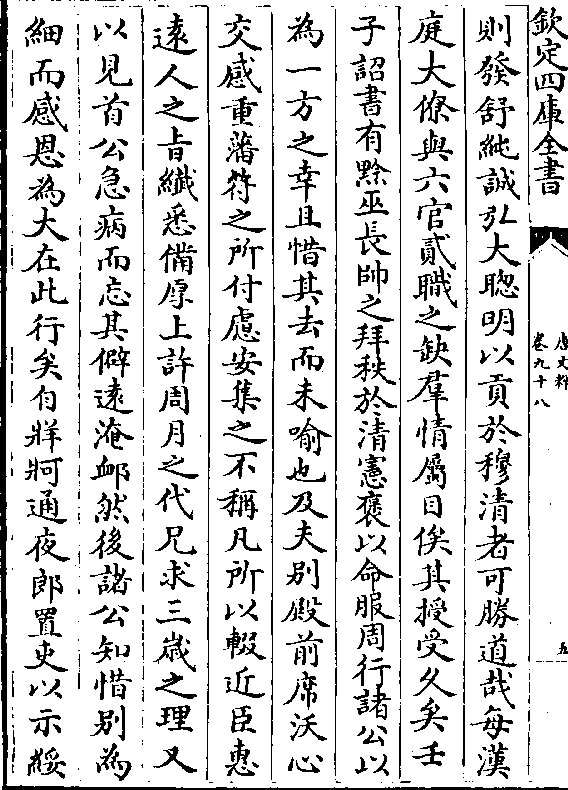 欽定四庫全書
唐文粹
卷九十八
五
則發舒純誠弘大聰明以貢於穆清者可勝道哉每漢
庭大僚與六官貳職之缺羣情屬目俟其授受久矣壬
子詔書有黔巫長帥之拜秩於清憲褒以命服周行諸公以
為一方之幸且惜其去而未喻也及夫别殿前席沃心
交感重藩符之所付慮安集之不稱凡所以輟近臣惠
遠人之旨纎悉備厚上許周月之代兄求三嵗之理又
以見首公急病而忘其僻遠淹䘏然後諸公知惜别為
細而感恩為大在此行矣自牂牁通夜郎置吏以示綏